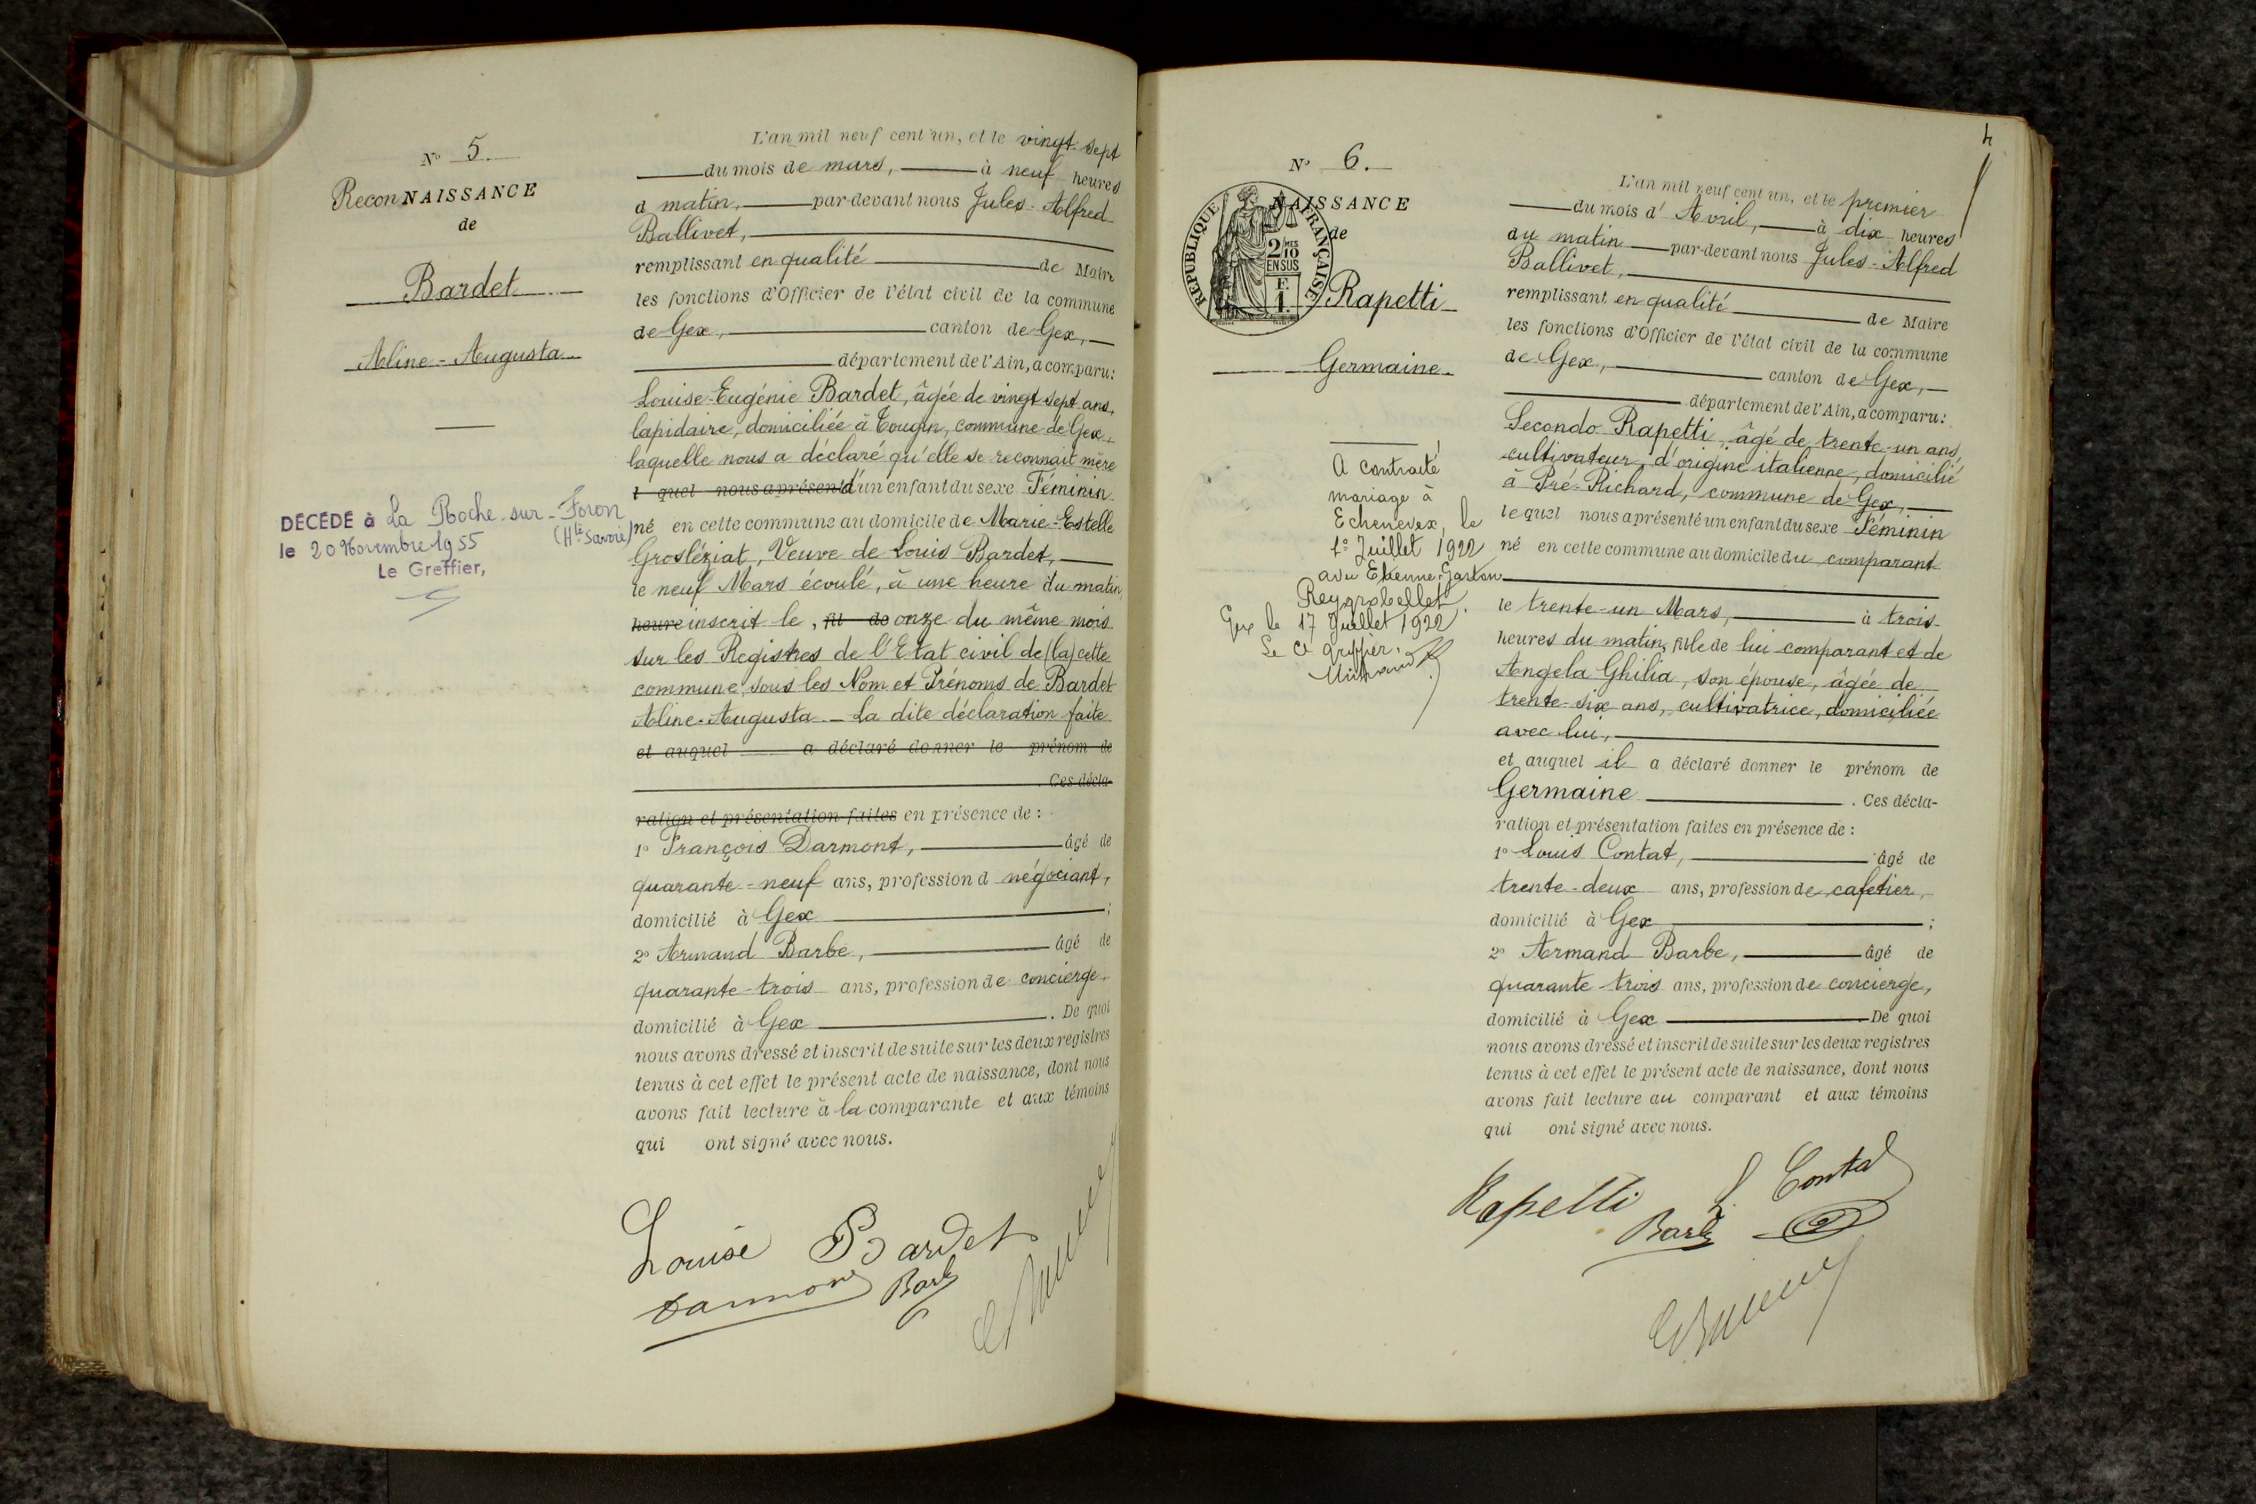 N° 5.
ReconNAISSANCE
de
Bardet
Aline-Augusta
DÉCÉDÉ à La Roche-sur-Foron
(Hte Savoie)
le 20 Novembre 1955
Le Greffier,
L'an mil neuf cent un, et le vingt-sept
du mois de mars, à neuf heures
d matin, par-devant nous Jules-Alfred
Ballivet,
remplissant en qualité de Maire
les fonctions d'Officier de l'état civil de la commune
de Gex, canton de Gex,
département de l'Ain, a comparu:
Louise-Eugénie Bardet, âgée de vingt sept ans,
lapidaire, domiciliée à Tougin, commune de Gex,
laquelle nous a déclaré qu'elle se reconnait mère
l quel nous a présenté d'un enfant du sexe Féminin
né en cette commune au domicile de Marie-Estelle
Grosléziat, Veuve de Louis Bardet,
le neuf Mars écoulé, à une heure du matin,
heure inscrit le, fil de onze du même mois
sur les Registres de l'Etat civil de (la) cette
commune, sous les Nom et Prénoms de Bardet
Aline-Augusta. — La dite déclaration faite
et auquel a déclaré donner le prénom de
. Ces décla-
ration et présentation faites en présence de :
1° François Darmont, âgé de
quarante-neuf ans, profession d négociant,
domicilié à Gex ;
2° Armand Barbe, âgé de
quarante-trois ans, profession de concierge
domicilié à Gex . De quoi
nous avons dressé et inscrit de suite sur les deux registres
tenus à cet effet le présent acte de naissance, dont nous
avons fait lecture à la comparante et aux témoins
qui ont signé avec nous.
Louise Bardet
Darmont Barbe
N° 6.
NAISSANCE
de
RÉPUBLIQUE FRANÇAISE
2/10 MES
EN SUS
F.
1.
Rapetti
Germaine.
A contracté
mariage à
Echenevex, le
1er Juillet 1922
avec Etienne Gaston
Reygrobellet.
Gex le 17 Juillet 1922
Le Cs greffier,
L'an mil neuf cent un, et le premier
du mois d'Avril, à dix heures
du matin par-devant nous Jules-Alfred
Ballivet,
remplissant en qualité de Maire
les fonctions d'Officier de l'état civil de la commune
de Gex, canton de Gex,
département de l'Ain, a comparu:
Secondo Rapetti, âgé de trente-un ans,
cultivateur, d'origine italienne, domicilié
à Pré-Richard, commune de Gex,
lequel nous a présenté un enfant du sexe Féminin
né en cette commune au domicile du comparant
le trente-un Mars, à trois
heures du matin, fille de lui comparant et de
Angela Ghilia, son épouse, âgée de
trente-six ans, cultivatrice, domiciliée
avec lui,
et auquel il a déclaré donner le prénom de
Germaine . Ces décla-
ration et présentation faites en présence de :
1° Louis Contat, âgé de
trente-deux ans, profession de cafetier,
domicilié à Gex ;
2° Armand Barbe, âgé de
quarante trois ans, profession de concierge,
domicilié à Gex . De quoi
nous avons dressé et inscrit de suite sur les deux registres
tenus à cet effet le présent acte de naissance, dont nous
avons fait lecture au comparant et aux témoins
qui ont signé avec nous.
Rapetti L. Contat
Barbe